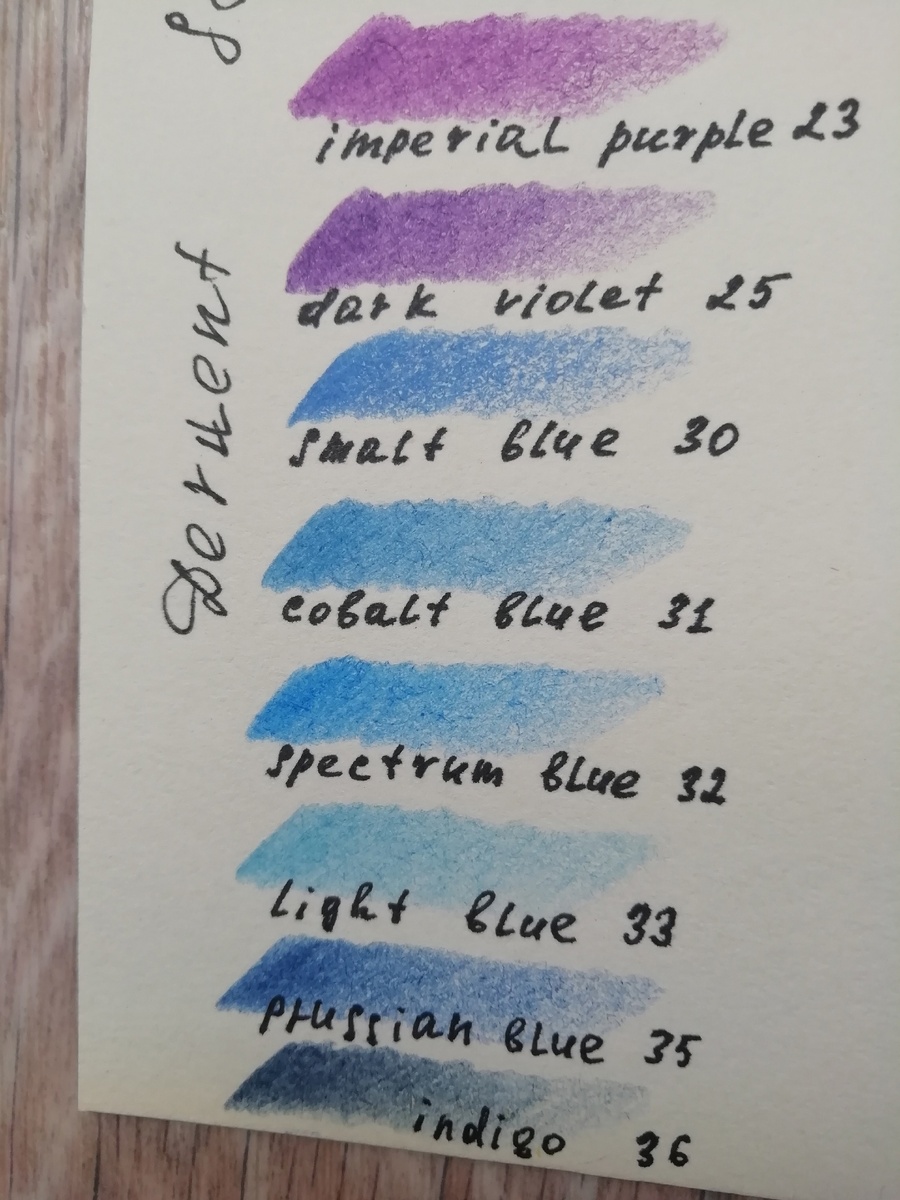 Derwent
imperial purple 23
dark violet 25
smalt blue 30
cobalt blue 31
spectrum blue 32
light blue 33
prussian blue 35
indigo 36